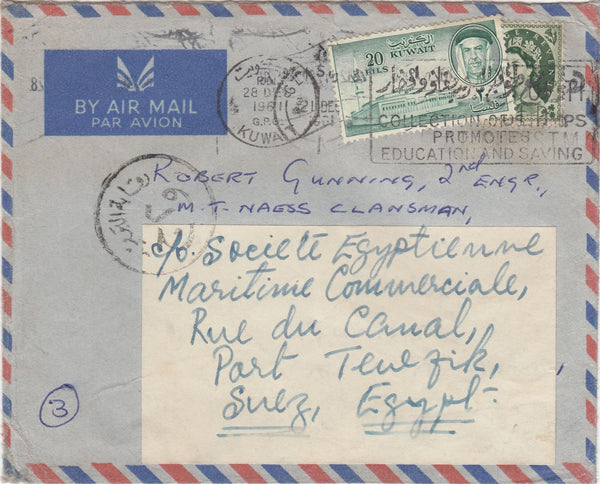 BY AIR MAIL
PAR AVION
الكويت
20
FILS
KUWAIT
28 DE
1961
G.P.O.
KUWAIT
21 DEC
1961
COLLECTION OF STAMPS
PROMOTES
EDUCATION AND SAVING
ROBERT GUNNING, 2nd ENGR.,
M.T. NAESS CLANSMAN,
c/o. Societe Egyptienne
Maritime Commerciale,
Rue du Canal,
Port Tewzik,
Suez, Egypt.
3